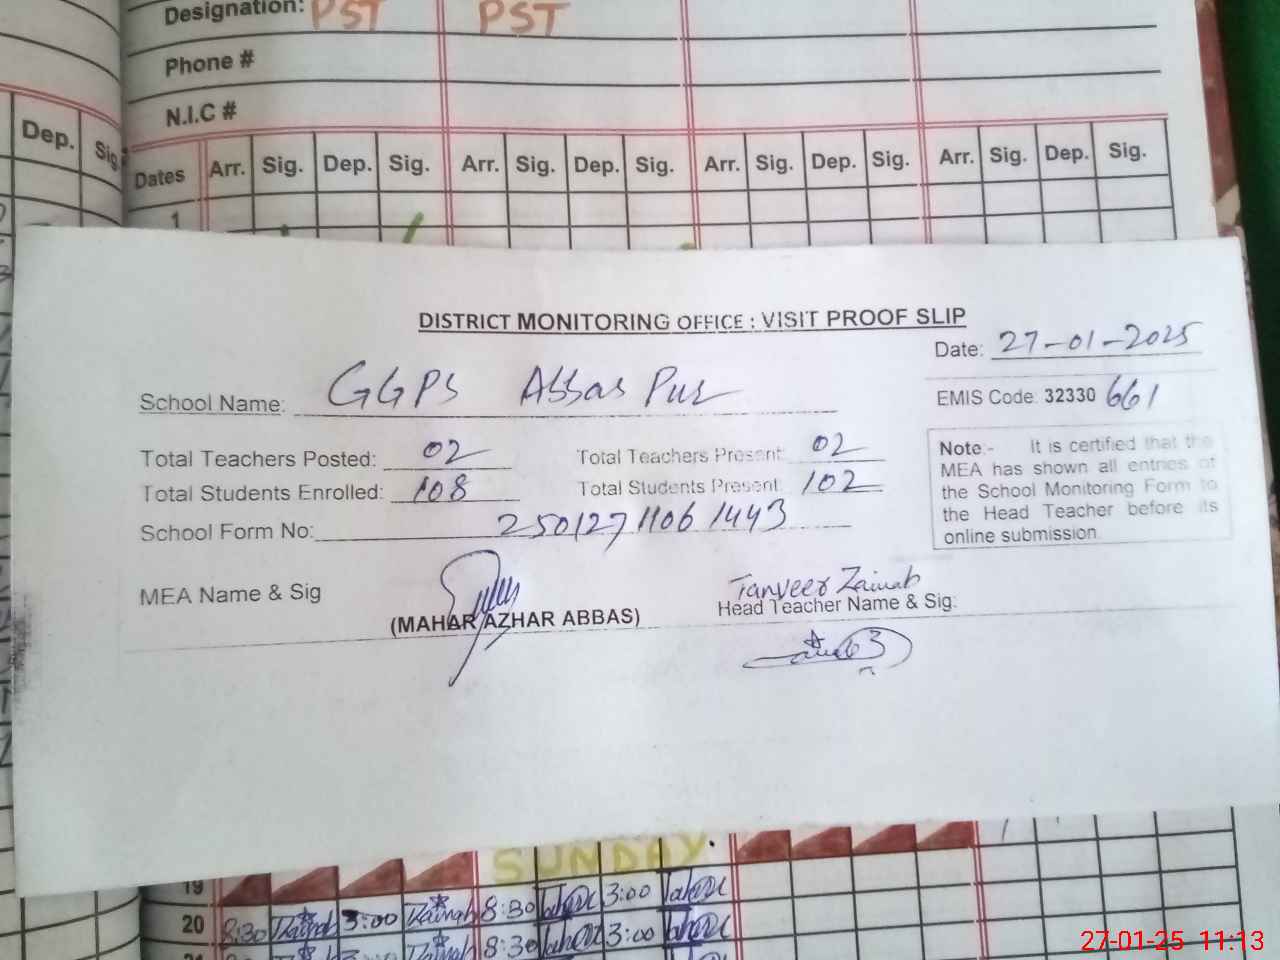 Designation: PST PST
Phone #
N.I.C #
Dep. Sig.
Dates Arr. Sig. Dep. Sig. Arr. Sig. Dep. Sig. Arr. Sig. Dep. Sig. Arr. Sig. Dep. Sig.
1
DISTRICT MONITORING OFFICE : VISIT PROOF SLIP
Date: 27-01-2025
School Name: GGPS Abbas Pur
EMIS Code: 32330 661
Total Teachers Posted: 02 Total Teachers Present: 02
Total Students Enrolled: 108 Total Students Present: 102
School Form No: 2501271106 1443
Note:- It is certified that the
MEA has shown all entries of
the School Monitoring Form to
the Head Teacher before its
online submission.
MEA Name & Sig
(MAHAR AZHAR ABBAS)
Tanveer Zainab
Head Teacher Name & Sig:
SUNDAY
19
20 8:30 Zainab 3:00 Zainab 8:30 3:00
8:30 3:00
27-01-25 11:13